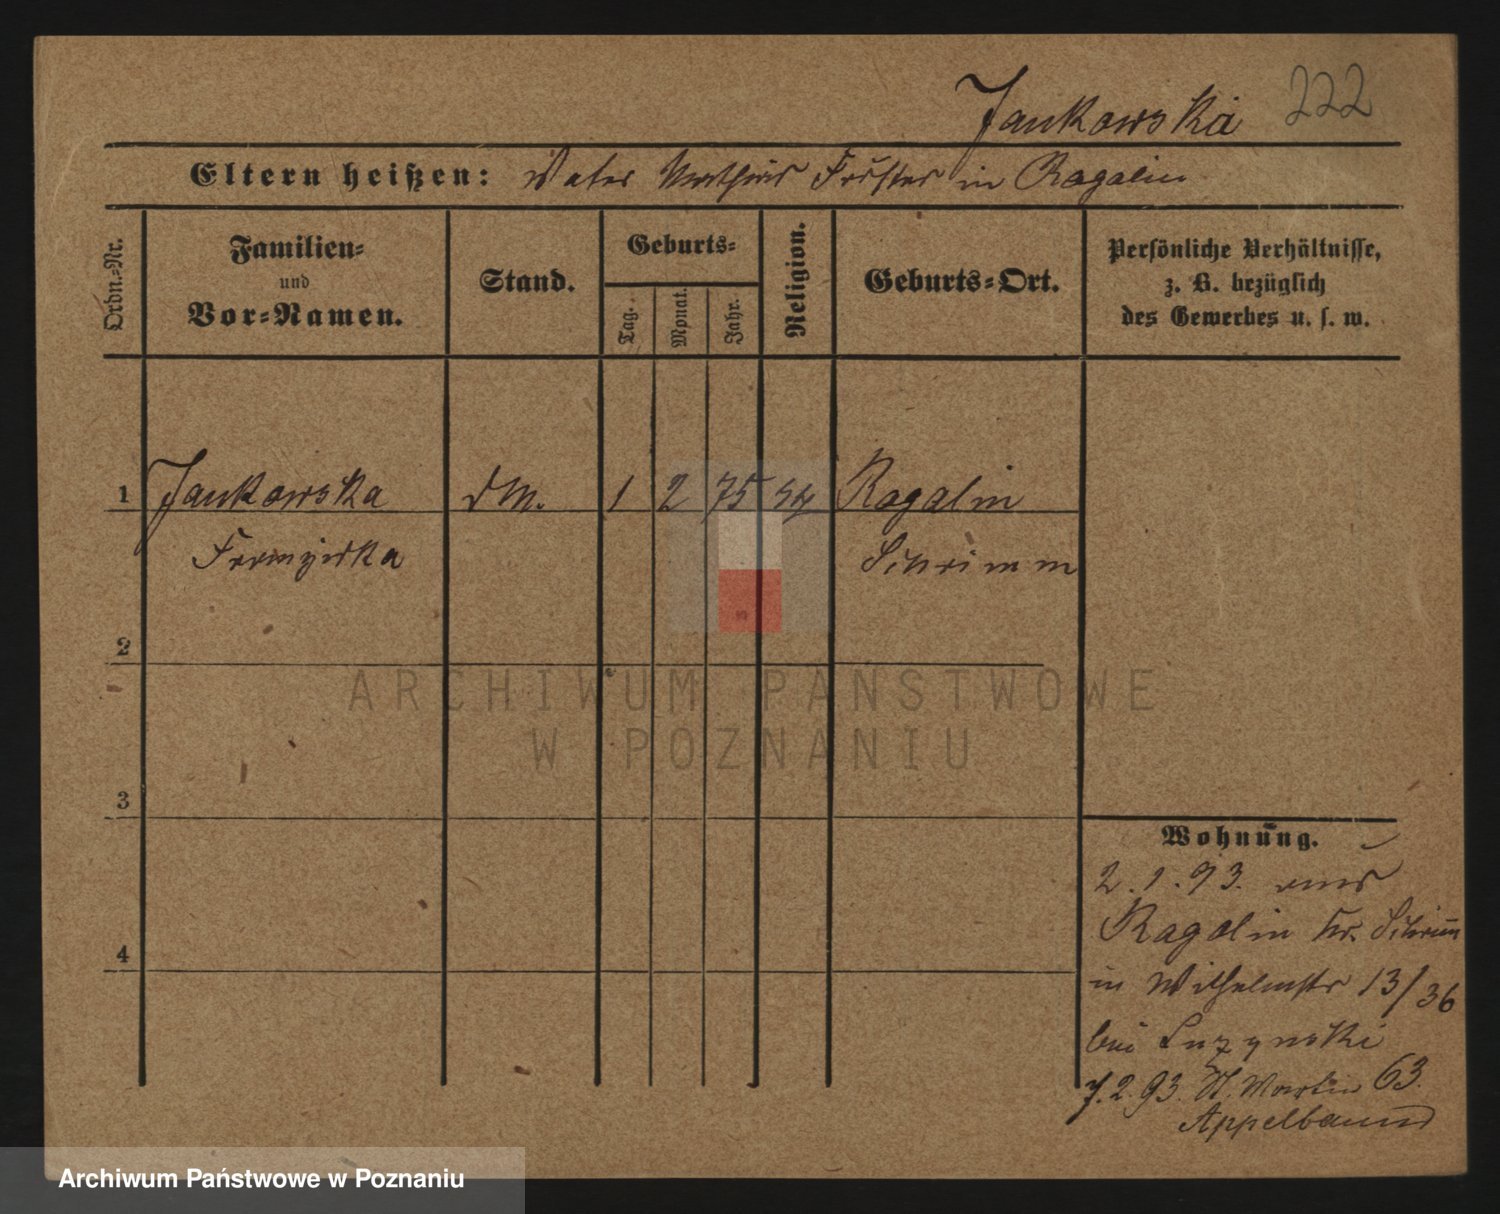 Jankowska 222
Eltern heißen: Vater Mathias Förster in Rogalin
Ordn.-Nr.
Familien-
und
Vor-Namen.
Stand.
Geburts-
Tag.
Monat.
Jahr.
Religion.
Geburts-Ort.
Persönliche Verhältnisse,
z. B. bezüglich
des Gewerbes u. s. w.
1 Jankowska dM. 1 2 75 Rogalin
Schrimm
2
3
4
Wohnung.
2.1.93. aus
Rogalin Kr. Schrimm
in Wilhelmstr 13/36
bei
7.2.93. St. Martin 63.
Appelbaum
ARCHIWUM PAŃSTWOWE
W POZNANIU
Archiwum Państwowe w Poznaniu